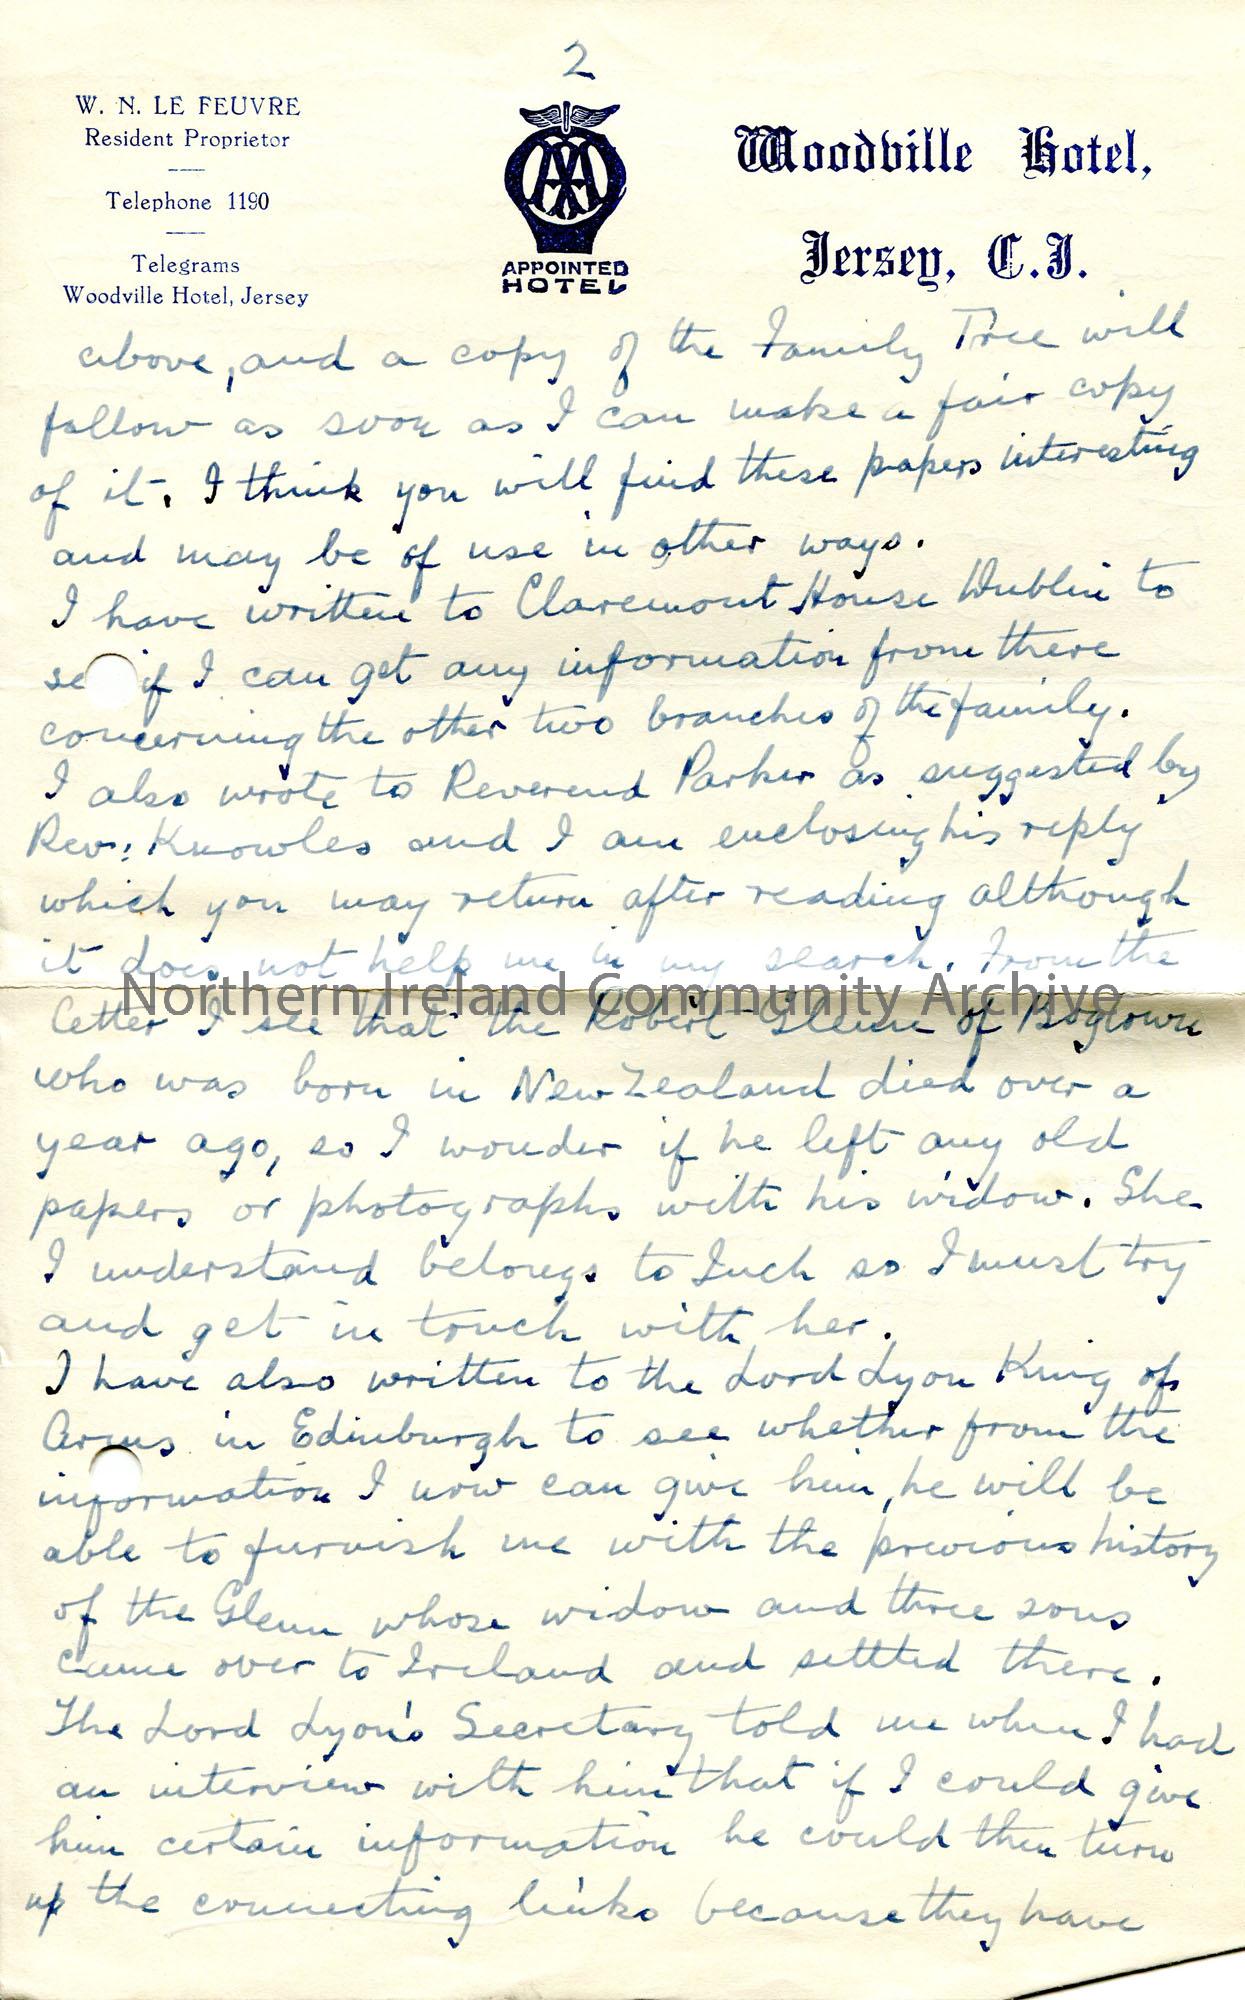 2
W. N. LE FEUVRE
Resident Proprietor
Telephone 1190
Telegrams
Woodville Hotel, Jersey
AA
APPOINTED
HOTEL
Woodville Hotel,
Jersey, C.I.
above, and a copy of the Family Tree will
follow as soon as I can make a fair copy
of it. I think you will find these papers interesting
and may be of use in other ways.
I have written to Claremont House Dublin to
se if I can get any information from there
concerning the other two branches of the family.
I also wrote to Reverend Parker as suggested by
Rev: Knowles and I am enclosing his reply
which you may return after reading although
it does not help me in my search. From the
Northern Ireland Community Archive
letter I see that the Robert Glenn of Bogtown
who was born in New Zealand died over a
year ago, so I wonder if he left any old
papers or photographs with his widow. She
I understand belongs to Inch so I must try
and get in touch with her.
I have also written to the Lord Lyon King of
Arms in Edinburgh to see whether from the
information I now can give him, he will be
able to furnish me with the previous history
of the Glenn whose widow and three sons
came over to Ireland and settled there.
The Lord Lyon's Secretary told me when I had
an interview with him that if I could give
him certain information he could then turn
up the connecting links because they have